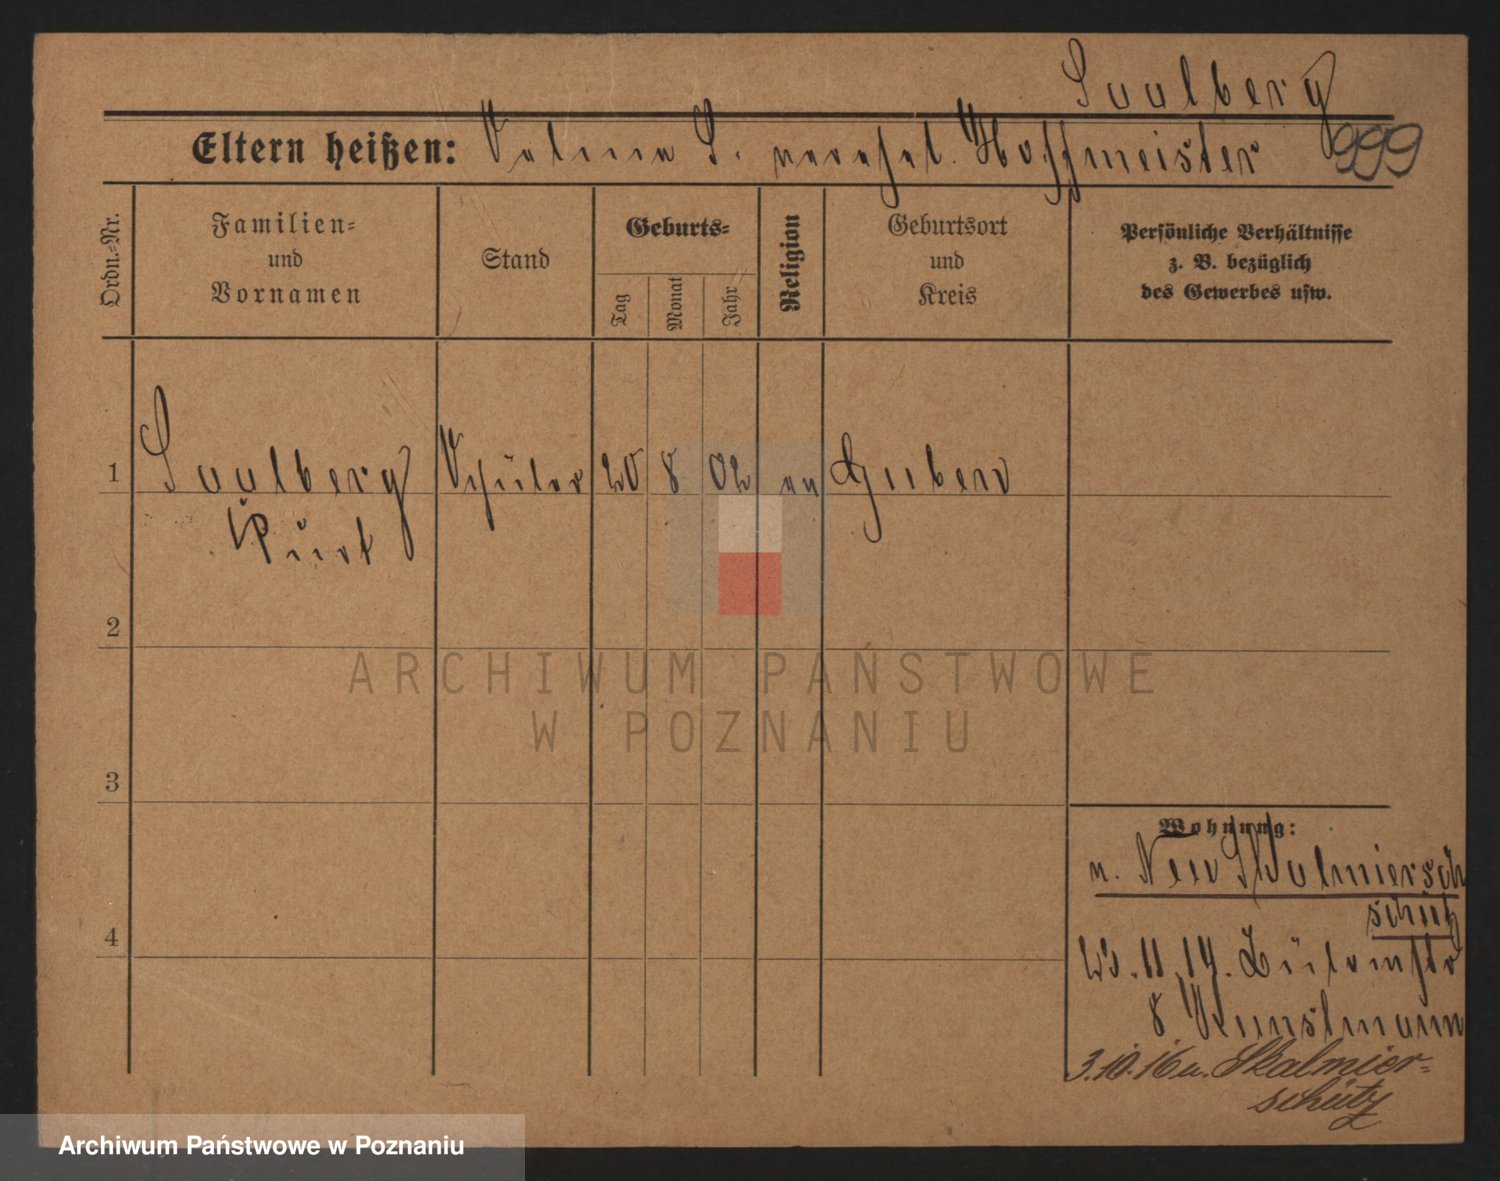 Saalberg
Eltern heißen: S. Hoffmeister 999
Ordn.-Nr.
Familien-
und
Vornamen
Stand
Geburts-
Tag
Monat
Jahr
Religion
Geburtsort
und
Kreis
Persönliche Verhältnisse
z. B. bezüglich
des Gewerbes usw.
1 Saalberg Schüler 20 8 02 ev Guben
Kurt
2
3
4
Wohnung:
n. Neu Skalmiersch
schütz
11.14.
8 Kunstmann
3.10.16 n. Skalmier-
schütz
ARCHIWUM PAŃSTWOWE
W POZNANIU
Archiwum Państwowe w Poznaniu